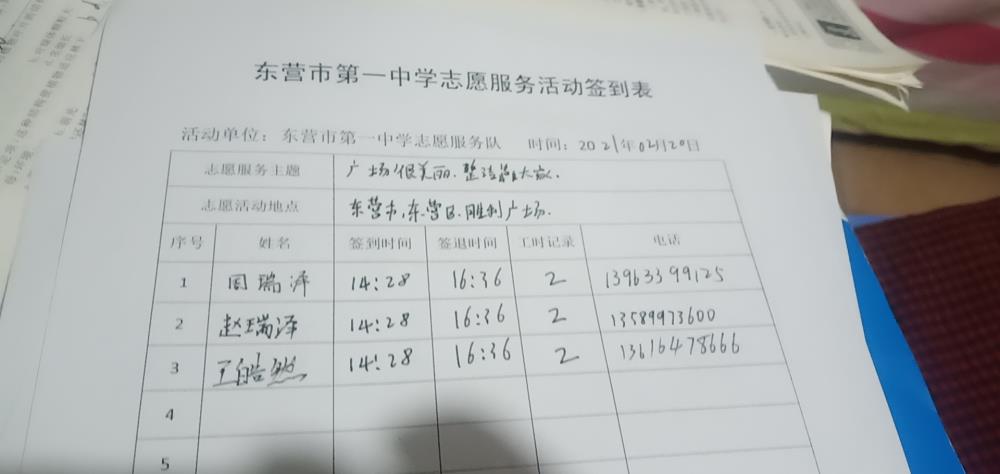 东营市第一中学志愿服务活动签到表
活动单位：东营市第一中学志愿服务队 时间：2021年02月20日
志愿服务主题 广场很美丽.整洁靠大家.
志愿活动地点 东营市,东营区.胜利广场.
序号 姓名 签到时间 签退时间 工时记录 电话
1 周瑞泽 14:28 16:36 2 13963399125
2 赵瑞泽 14:28 16:36 2 13589973600
3 王皓然 14:28 16:36 2 13616478666
4
5